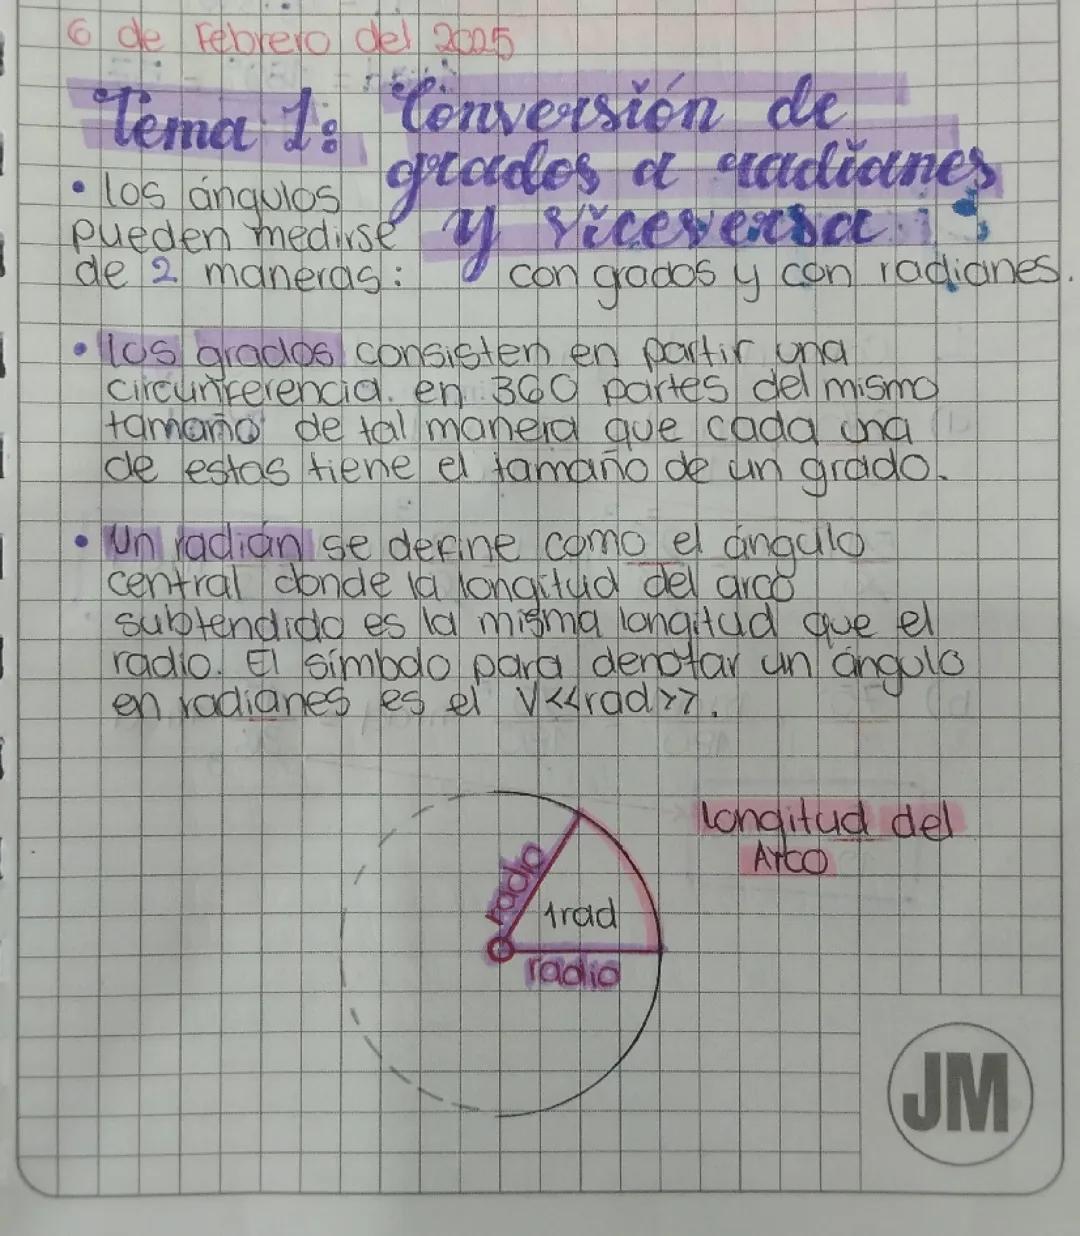 6 de Febrero del 2025
Tema 1: Conversión de
grados a radianes
y viceversa
• los ángulos
pueden medirse
de 2 maneras: con grados y con radianes.
• los grados consisten en partir una
circunferencia. en 360 partes del mismo
tamaño de tal manera que cada una
de estas tiene el tamaño de un grado.
• Un radián se define como el ángulo
central donde la longitud del arco
subtendido es la misma longitud que el
radio. El símbolo para denotar un ángulo
en radianes es el V<<rad>>.
longitud del
Arco
radio
1rad
radio
JM